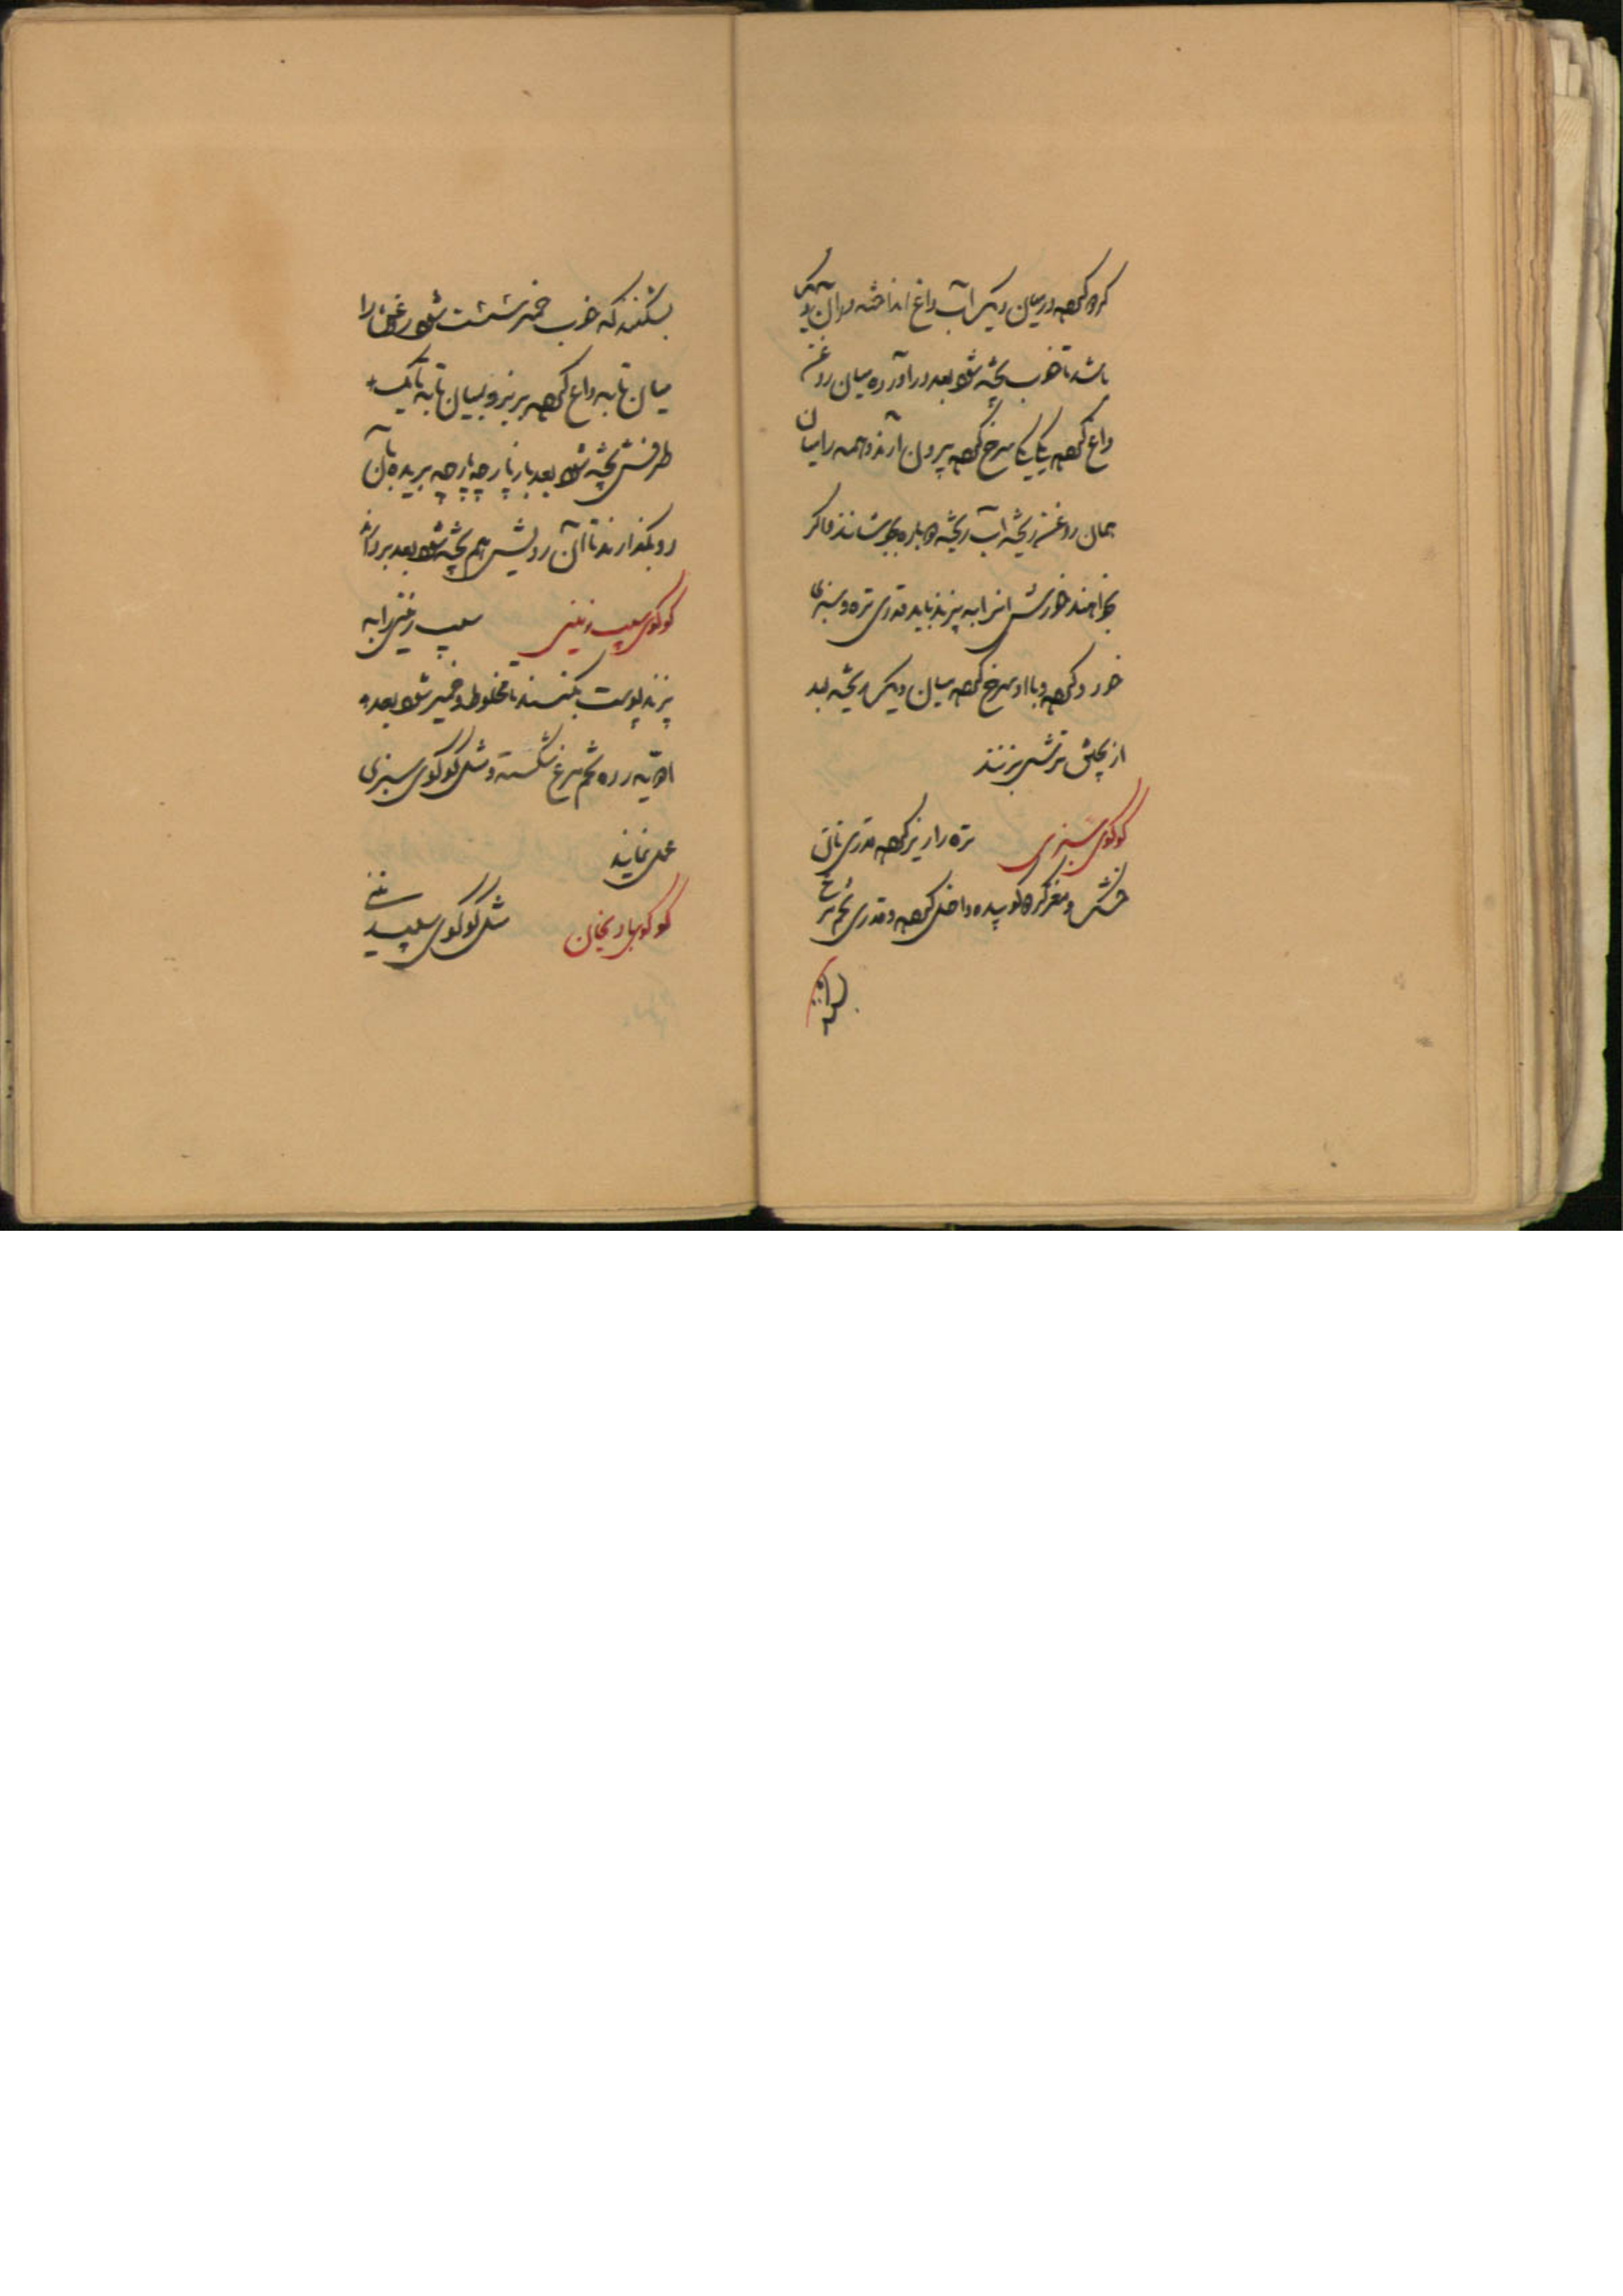 کرده در میان دیک آب داغ انداخته در آن دیک
باشد تا خوب پخته شود بعد در آورده میان روغن
داغ کرده یکایک سرخ کرده بیرون آرند و همه را میان
همان روغن ریخته آب ریخته دوباره بجوشانند و اگر
بخواهند خورش اسرابه پزند باید قدری تره و سبزی
خورد کرده و با او سرخ کرده میان دیک ریخته بعد
از پختن ترشی بزنند
کوکوی سبزی تره را ریز کرده قدری نان
خشک و مغز گردو کوبیده داخل کرده و قدری تخم مرغ
بشکنند که خوب خمیر شود روغن را
میان تابه داغ کرده بریزند و بمیان تابه تا یک
طرفش پخته شود بعد باز پارچه پارچه بریده بآن
رو بگذارند تا آن رویش هم پخته شود بعد بردارند
کوکوی سیب زمینی سیب زمینی را به
پزند پوست بکنند تا مخلوط و خمیر شود بعد
ادویه زده تخم مرغ شکسته و مثل کوکوی سبزی
عمل نمایند
کوکوی بادنجان مثل کوکوی سیب زمینی